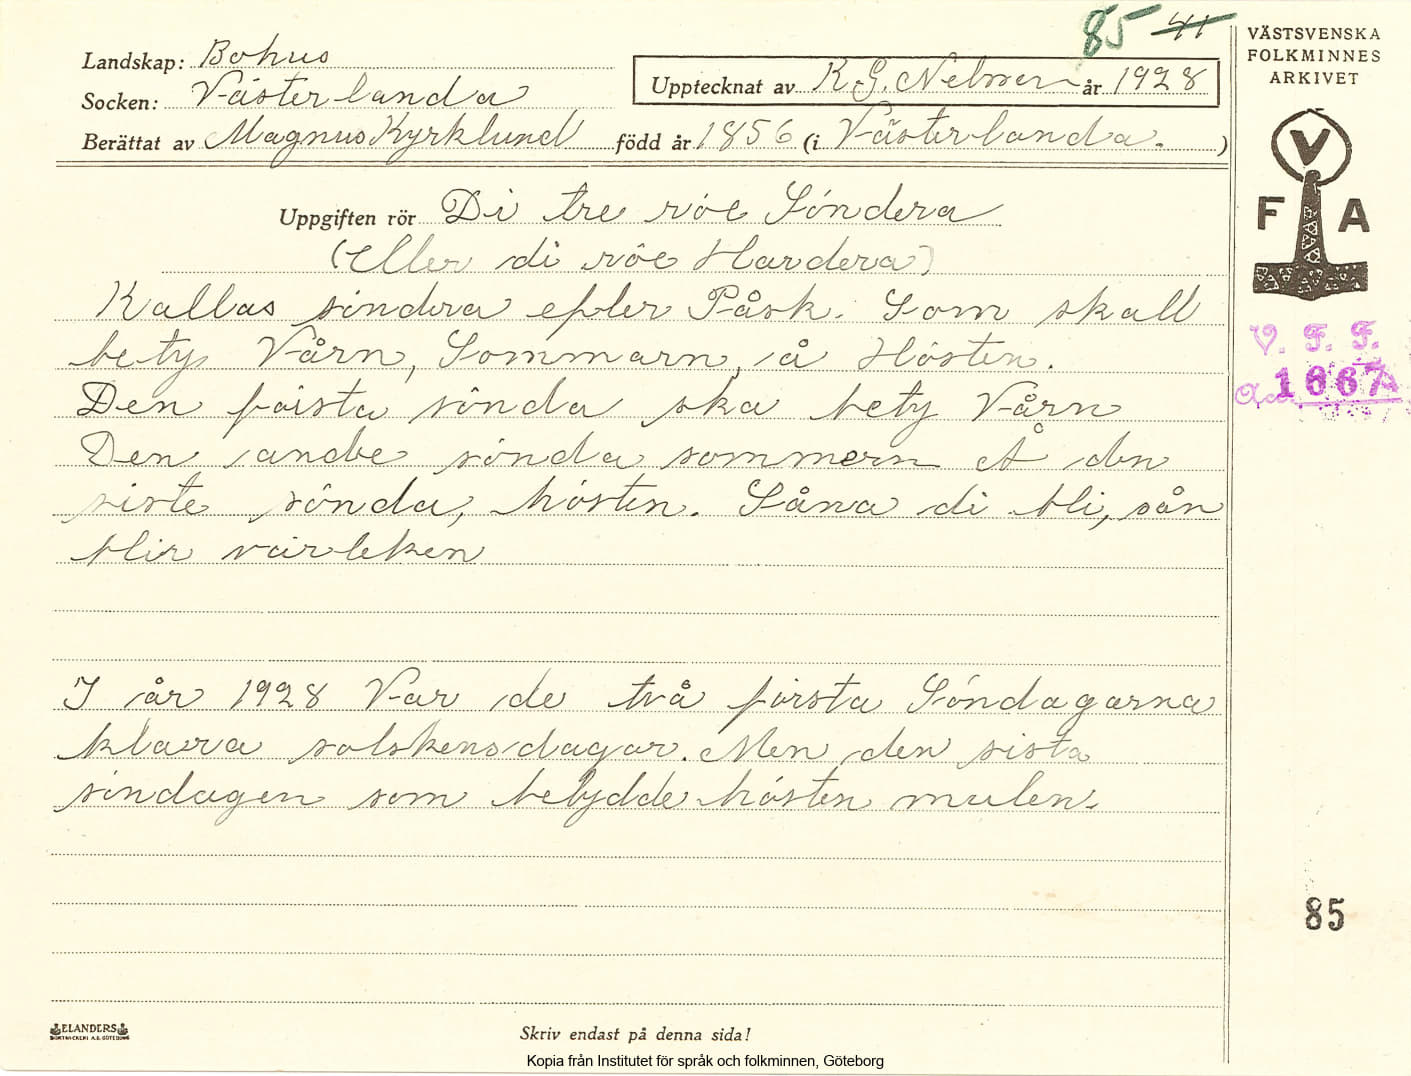 85 41
VÄSTSVENSKA
FOLKMINNES
ARKIVET
Landskap: Bohus
Upptecknat av K. G. Nelson år 1928
Socken: Västerlanda
Berättat av Magnus Kyrklund född år 1856 (i Västerlanda. )
V
F A
Uppgiften rör Di tre röe Söndera
(Eller di röe Hardera)
Kallas söndera efter Påsk. Som skall
bety Vårn, Sommarn, å Hösten.
Den första sönda ska bety Vårn
Den andbe sönda sommern Å den
siste sönda, hösten. Såna di bli, sån
blir värleken
V. F. F.
Acc. 1667
I år 1928 Var de två första Söndagarna
klara solskensdagar. Men den sista
söndagen som betydde hösten mulen.
85
ELANDERS
BOKTRYCKERI A.B. GÖTEBORG
Skriv endast på denna sida!
Kopia från Institutet för språk och folkminnen, Göteborg